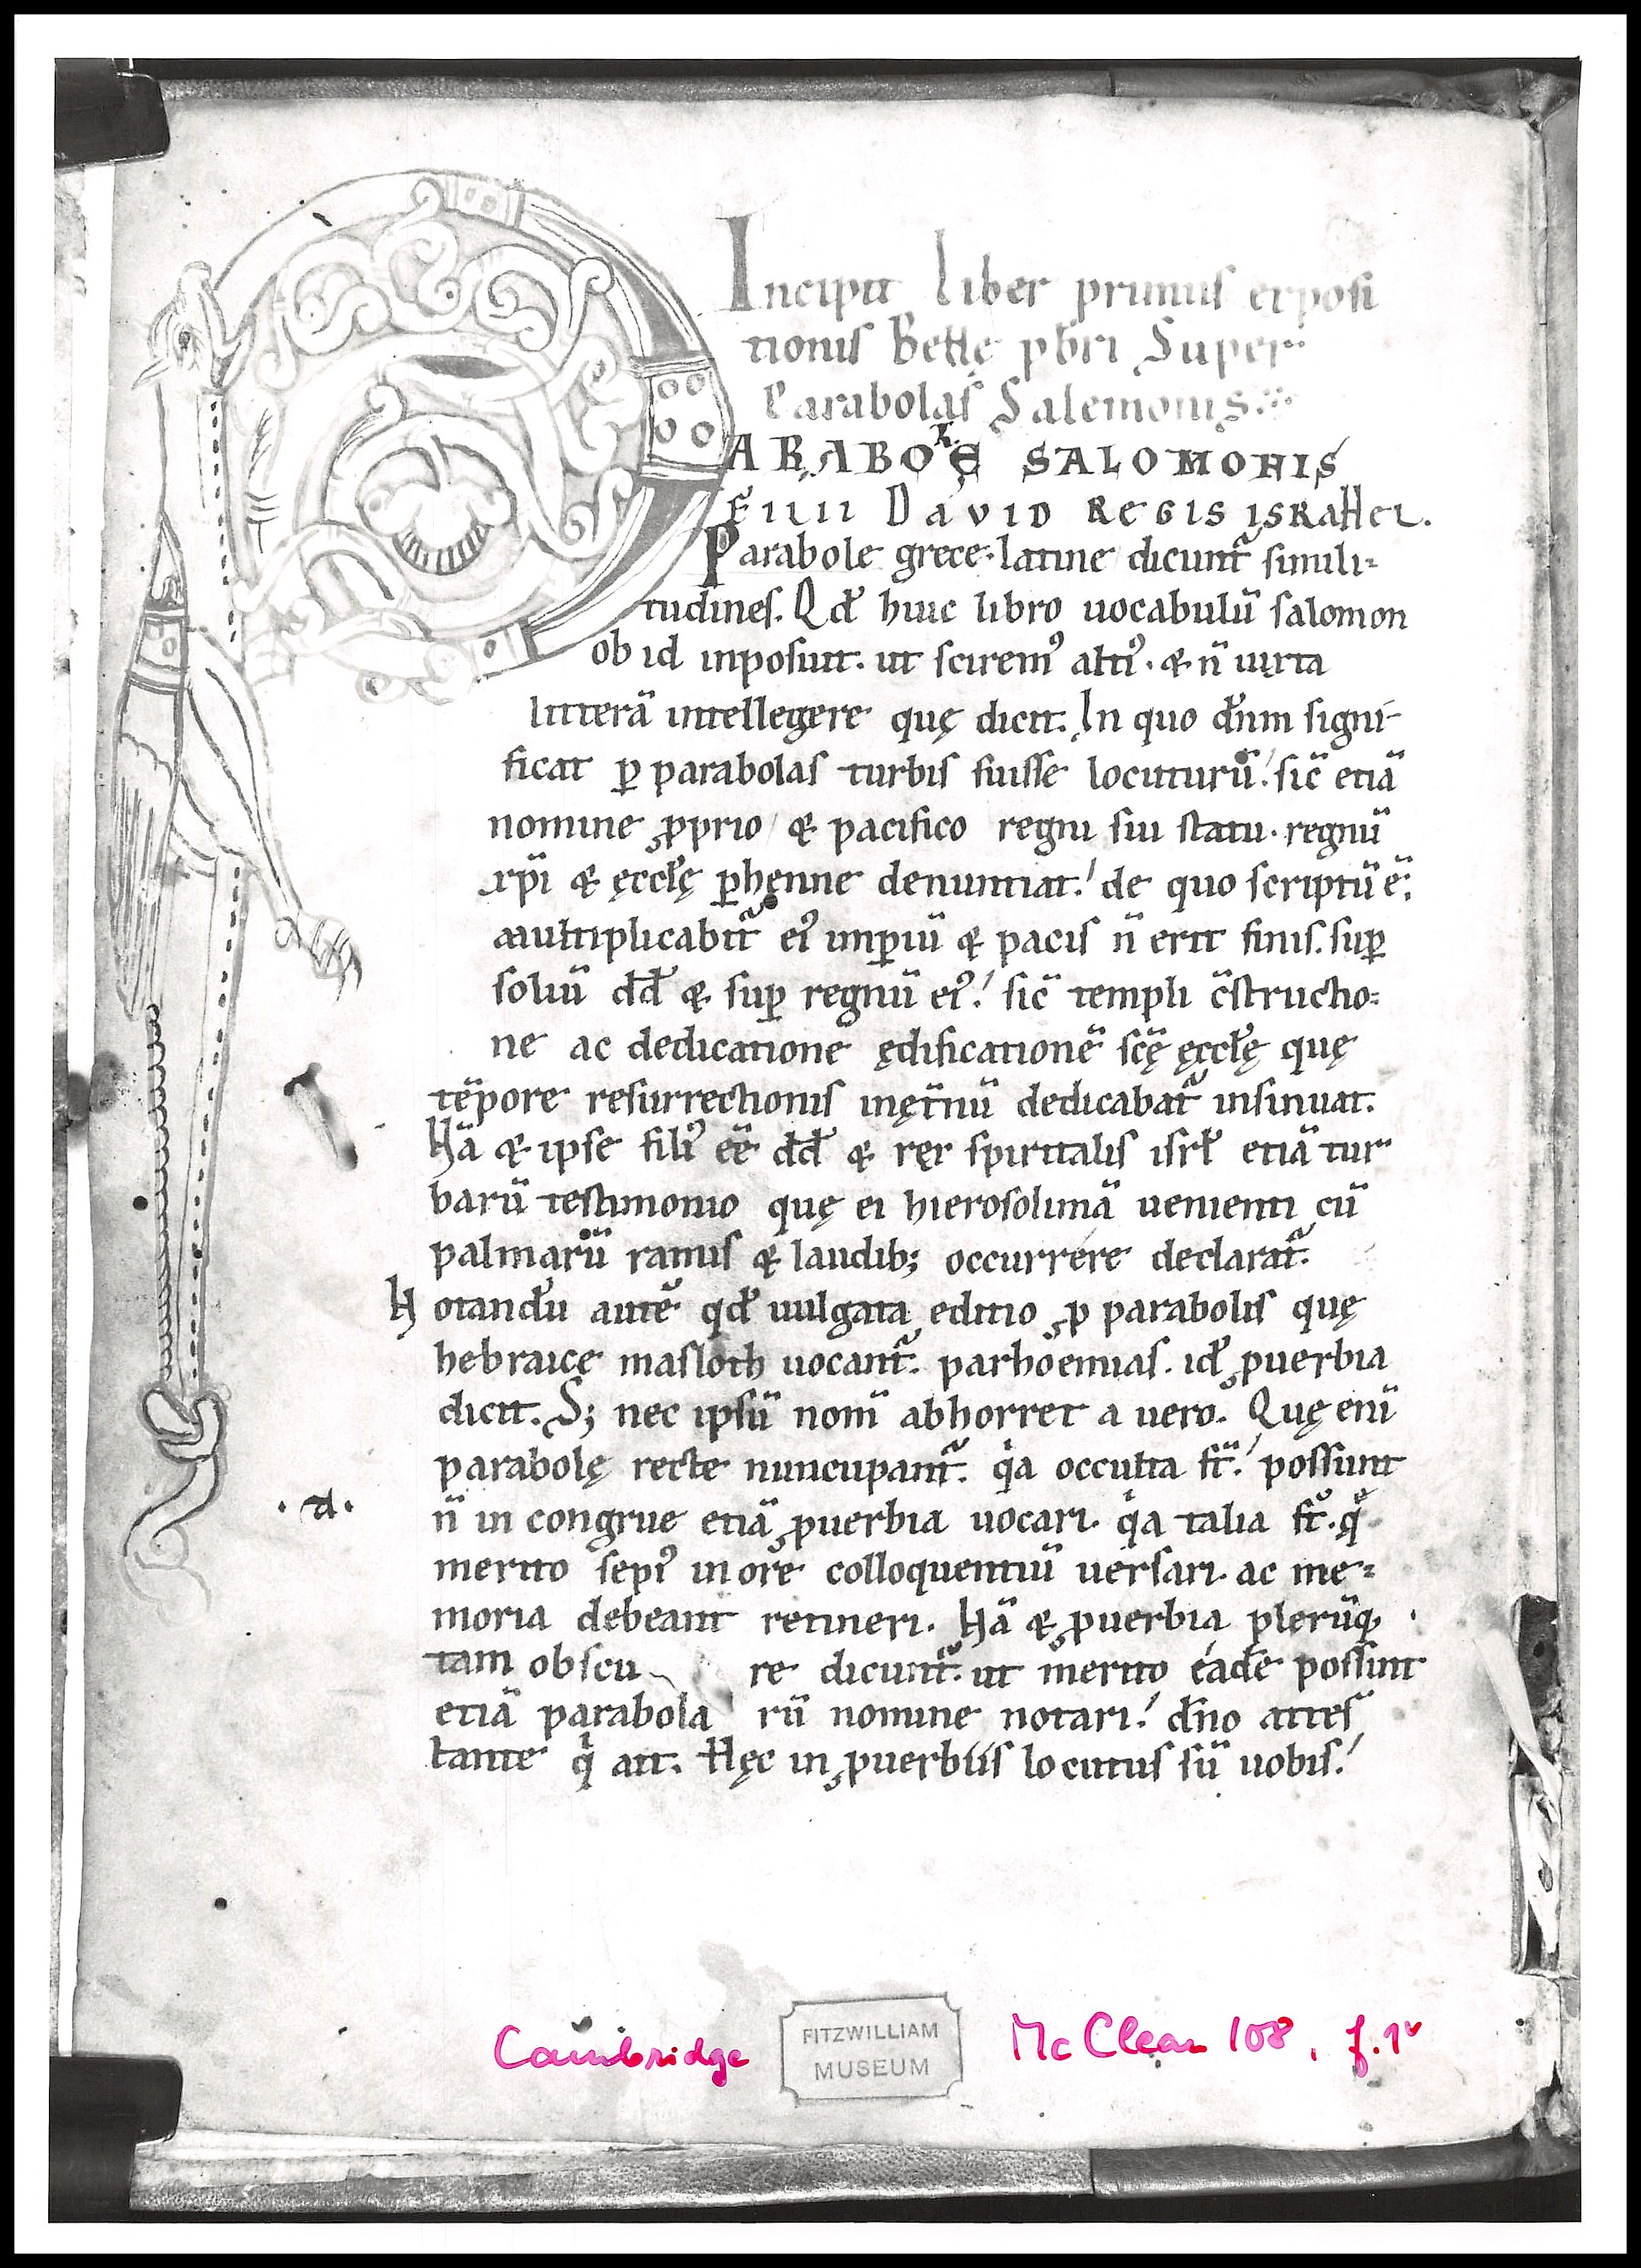 Incipit liber primus exposi
tionis Bede pbri Super
Parabolas Salemonis
PARABOLE SALOMONIS
FILII DAVID REGIS ISRAHEL.
Parabole grece. latine dicunt᷑ simili-
tudines. Qđ huic libro uocabulū salomon
ob id inposuit. ut sciremꝰ altiꝰ. & n̄ iuxta
litterā intellegere quę dicit. In quo dn̄m signi-
ficat ꝑ parabolas turbis fuisse locuturū. sic̄ etiā
nomine ꝓprio & pacifico regni sui statu. regnū
xp̄i & ęccłę ꝑhęnne denuntiat. de quo scriptū ē.
Multiplicabit᷑ eiꝰ imꝑiū & pacis n̄ erit finis. suꝑ
soliū dđ & suꝑ regnū eiꝰ. sic̄ templi c̄structio-
ne ac dedicationē ędificationē scę̄ ęccłę quę
tēpore resurrectionis inęt̄nū dedicabat᷑ insinuat.
Nā & ipse filiꝰ eē dđ & rex spiritalis isrł etiā tur
barū testimonio quę ei hierosolimā uenienti cū
palmarū ramis & laudib; occurrere declarat᷑.
Notandū autē qđ uulgata editio ꝓ parabolis quę
hebraice masloth uocant᷑. parhoemias. iđ ꝓuerbia
dicit. S; nec ipsū nom̄ abhorret a uero. Quę eni̅
parabolę recte nuncupant᷑. qͥa occulta st̄. possunt
n̄ in congrue etiā ꝓuerbia uocari. qͥa talia st̄. q̊
.d.
merito sepiꝰ in ore colloquentiū uersari. ac me-
moria debeant retineri. Nā & ꝓuerbia plerūq;
tam obscu re dicunt᷑. ut merito eadē possint
etiā parabola rū nomine notari. dn̄o attes
tante qͥ ait. Hęc in ꝓuerbiis locutus sū uobis.
Cambridge
FITZWILLIAM
MUSEUM
McClean 108, f.1v